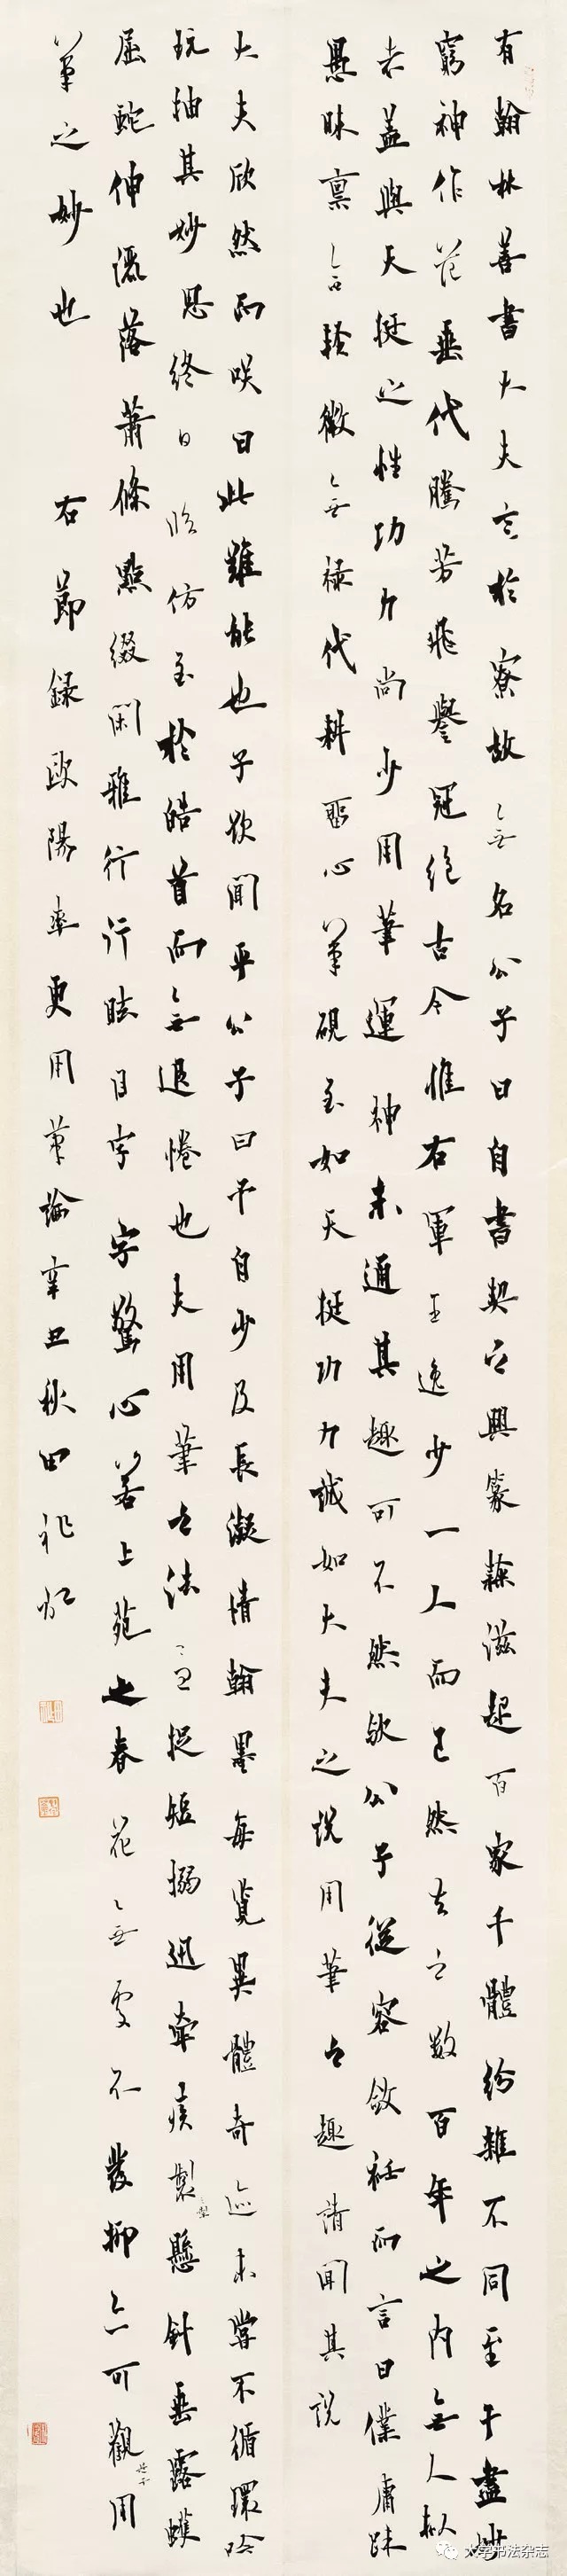 有翰林善書大夫言於寮故無名公子曰自書契之興篆隸滋起百家千體紛雜不同至于盡妙
窮神作范垂代騰芳飛譽冠絕古今惟右軍王逸少一人而已然去之數百年之內無人擬
者蓋與天挺之性功力尚少用筆運神未通其趣可不然歟公子從容斂衽而言曰僕庸昧
愚昧禀命輕微無祿代耕留心筆硯至如天挺功力誠如大夫之說用筆之趣請聞其說
大夫欣然而咲曰此難能也子欲聞乎公子曰予自少及長凝情翰墨每覽異體奇迹未嘗不循環吟
玩抽其妙思終日臨仿至於皓首而無退惓也夫用筆之法急捉短搦迅牽疾製懸針垂露蠖
屈蛇伸灑落蕭條點綴閑雅行行眩目字字驚心若上苑之春花無處不發抑亦可觀是予用
筆之妙也 右節錄歐陽率更用筆論辛丑秋田祉
大学书法杂志